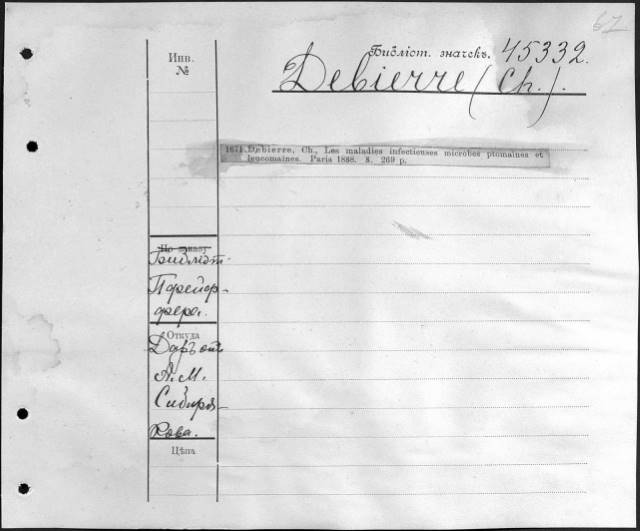 67
Инв.
№
Библіот. значекъ. 45332.
Debierre (Ch.).
1671. Debierre, Ch., Les maladies infectieuses microbes ptomaines et
leucomaines. Paris 1888. 8. 269 p.
По заказу
Библіот.
Пфейф-
фера.
Откуда
Даръ отъ
А. М.
Сибиря-
кова.
Цѣна